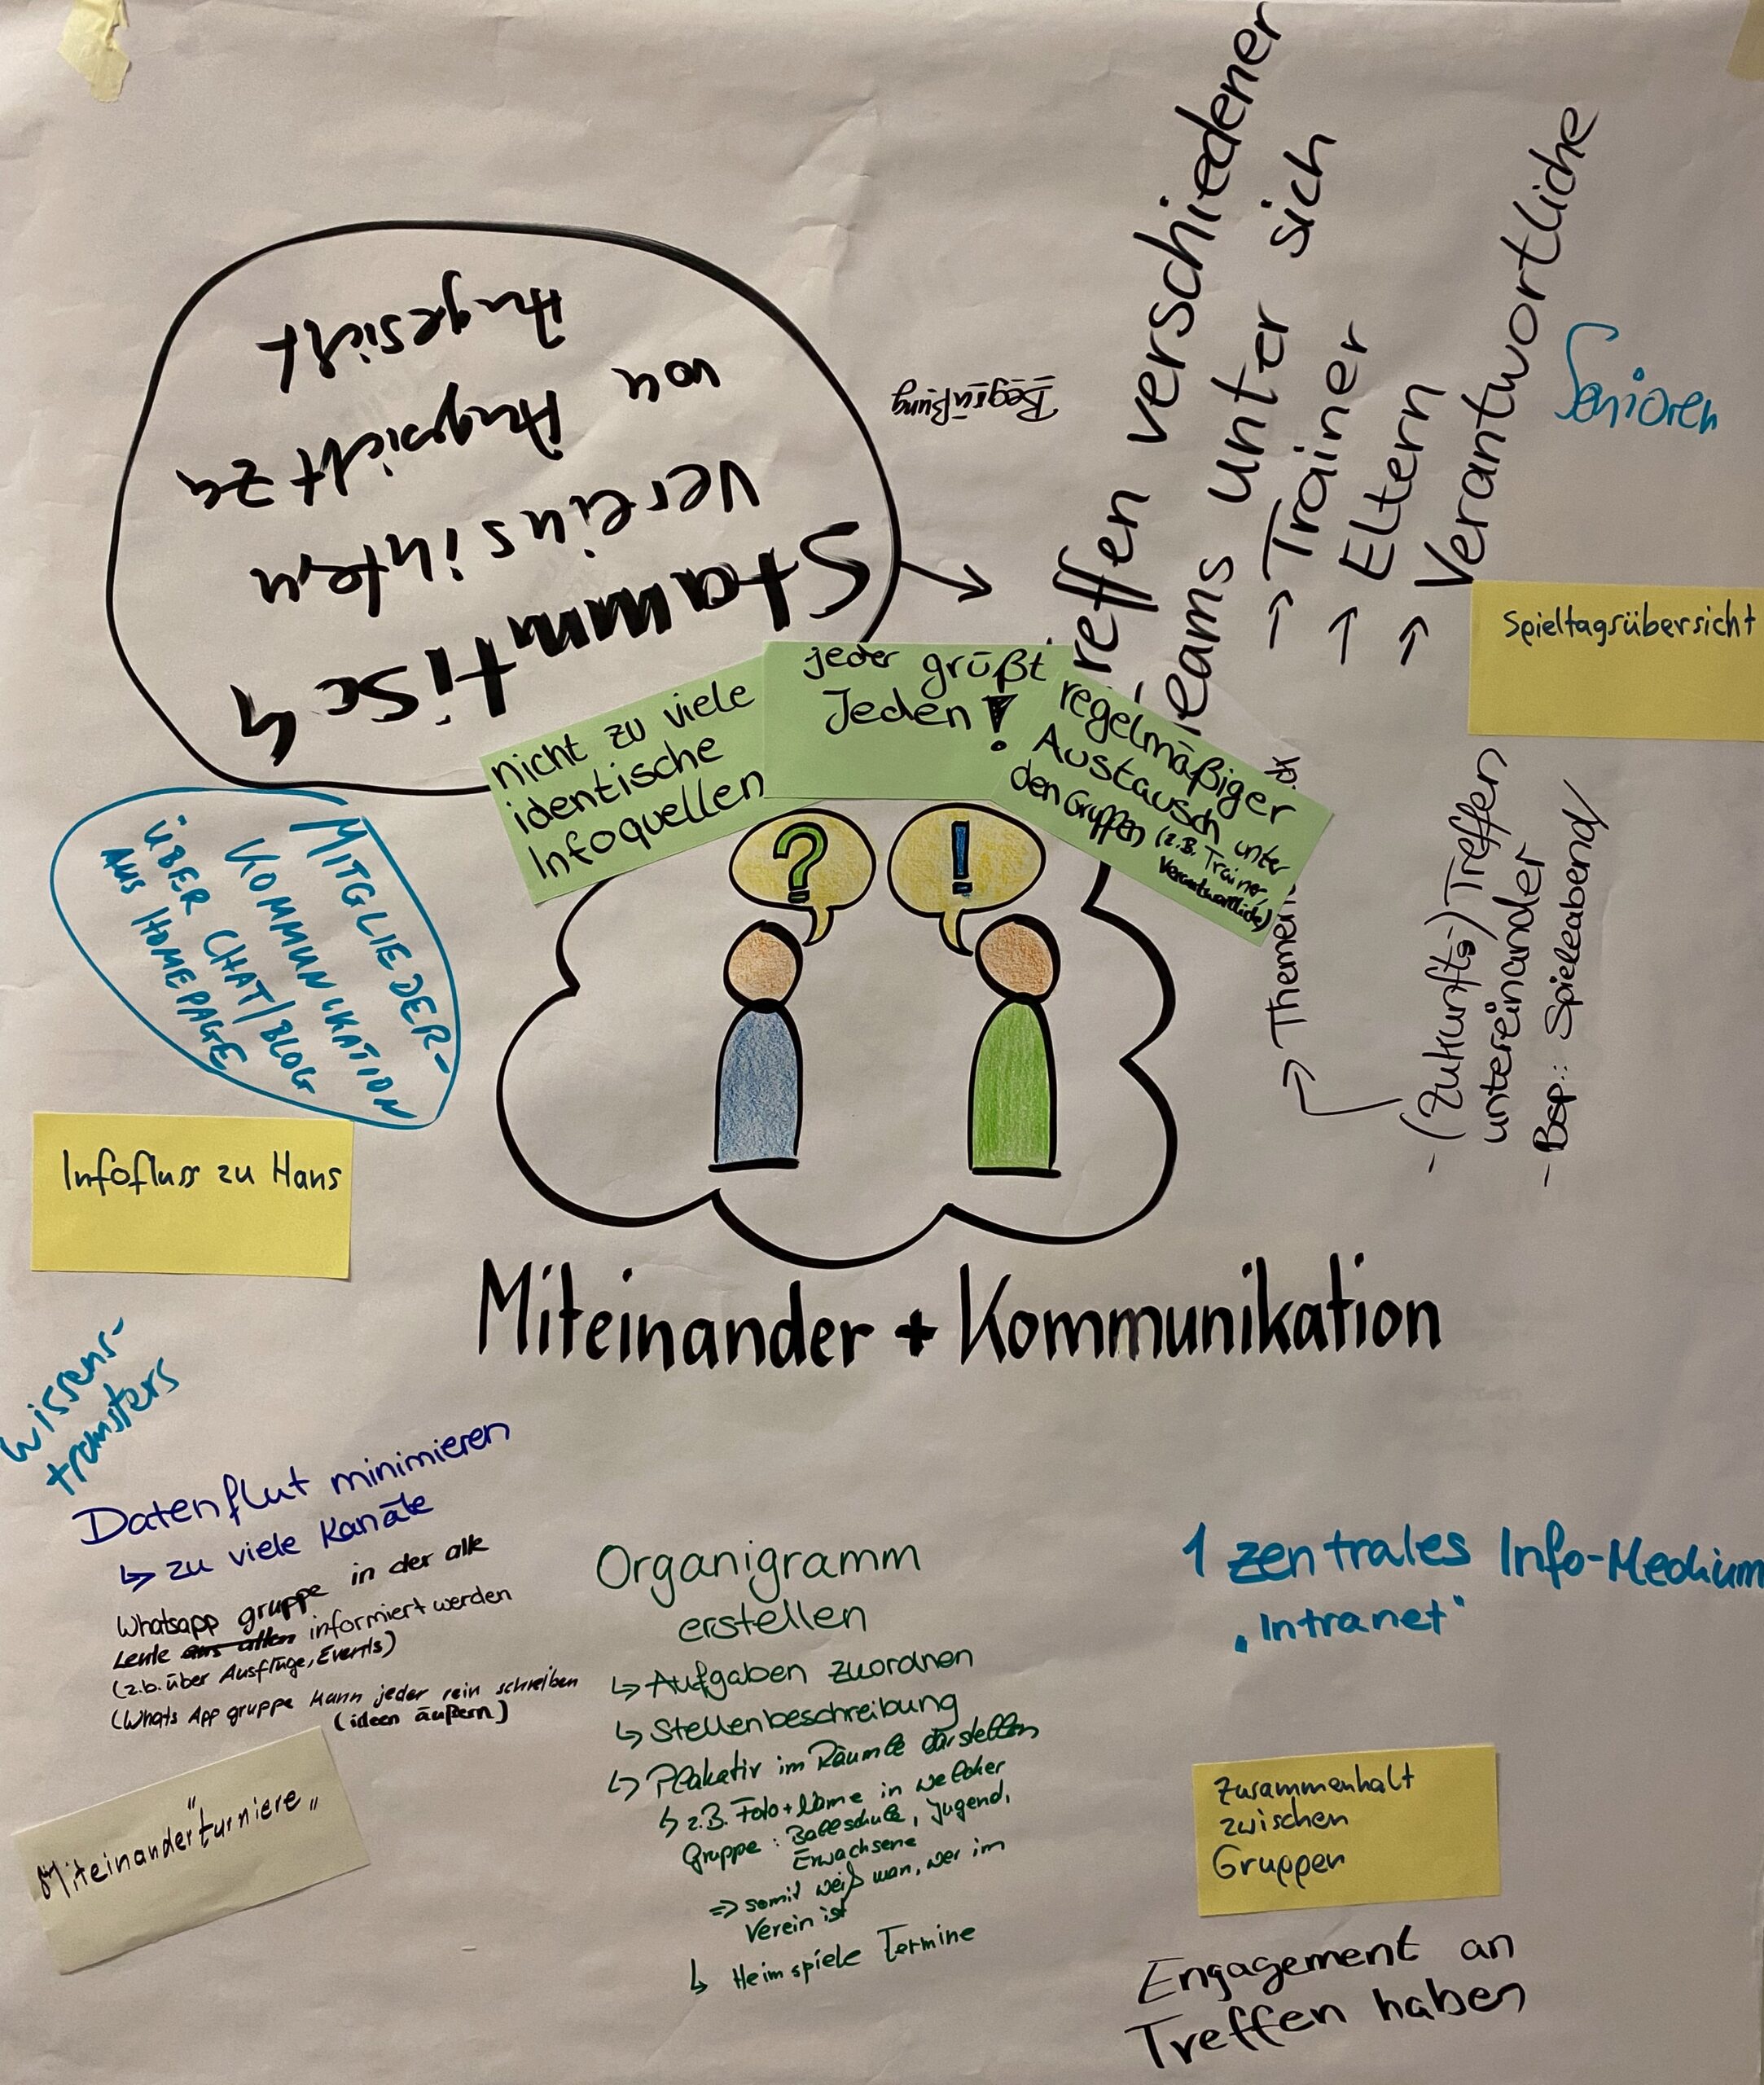 Stammtisch
vereinsintern
von Angesicht zu
Angesicht
Begrüßung
Treffen verschiedener
Teams unter sich
→ Trainer
→ Eltern
→ Verantwortliche
Senioren
Spieltagsübersicht
nicht zu viele
identische
Infoquellen
jeder grüßt
Jeden!
regelmäßiger
Austausch unter
den Gruppen (z.B. Trainer,
Verantwortliche)
→ Themen
- (Zukunfts-) Treffen
untereinander
- Bsp.: Spieleabend
MITGLIEDER-
KOMMUNIKATION
ÜBER CHAT/BLOG
AUS HOMEPAGE
?
!
Infofluss zu Hans
Miteinander + Kommunikation
Wissens-
transfers
Datenflut minimieren
↳ zu viele Kanäle
Whatsapp gruppe in der alle
Leute aus allen informiert werden
(z.b. über Ausflüge, Events)
(Whats App gruppe kann jeder rein schreiben
(ideen äußern)
"Miteinanderturniere"
Organigramm
erstellen
↳ Aufgaben zuordnen
↳ Stellenbeschreibung
↳ Plakativ im Räumle darstellen
↳ z.B. Foto + Name in welcher
Gruppe: Ballschule, Jugend,
Erwachsene
⇒ somit weiß man, wer im
Verein ist
↳ Heimspiele Termine
1 zentrales Info-Medium
"Intranet"
Zusammenhalt
zwischen
Gruppen
Engagement an
Treffen haben